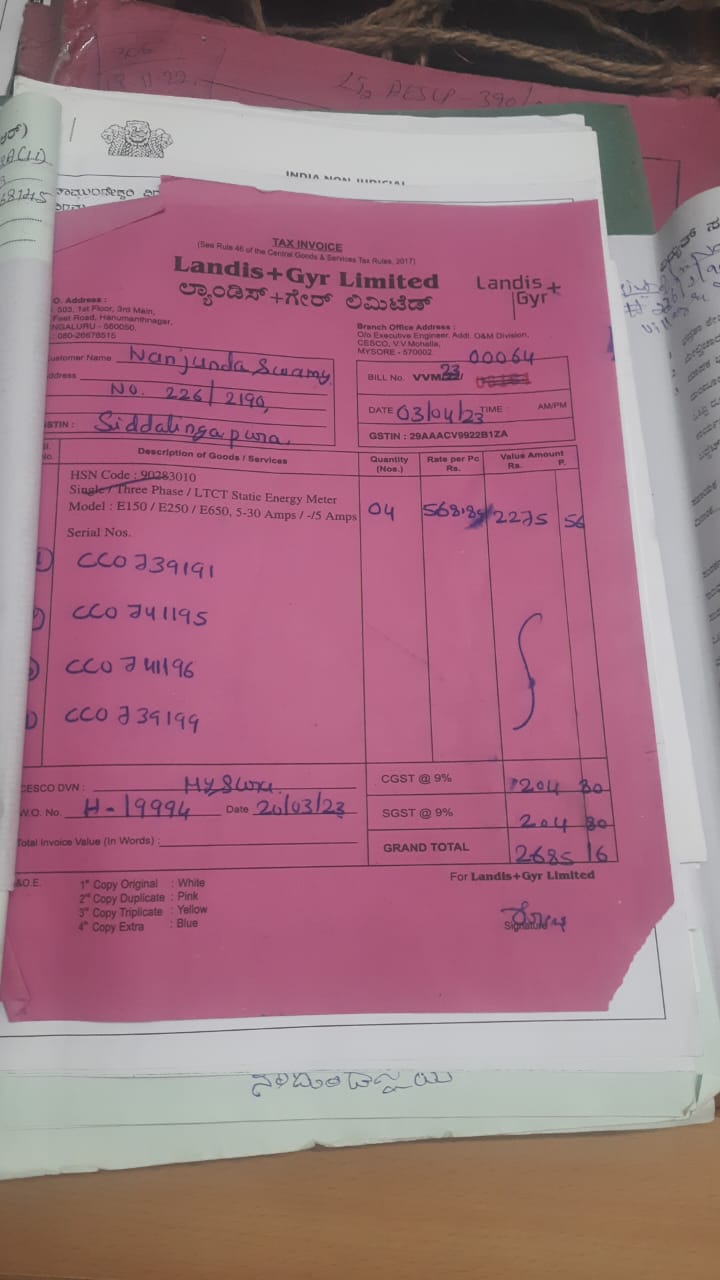 306
18.11.22
INDIA NON JUDICIAL
68145
TAX INVOICE
(See Rule 46 of the Central Goods & Services Tax Rules, 2017)
Landis+Gyr Limited
ಲ್ಯಾಂಡಿಸ್+ಗೇರ್ ಲಿಮಿಟೆಡ್
Landis+
Gyr
O. Address :
503, 1st Floor, 3rd Main,
Feet Road, Hanumanthnagar,
NGALURU - 560050.
: 080-26678515
Branch Office Address :
O/o Executive Engineer, Addl. O&M Division,
CESCO, V.V.Mohalla,
MYSORE - 570002.
ustomer Name Nanjunda Swamy
ddress
No. 226/2190,
STIN : Siddalingapura.
00064
BILL No. VVM 23/
DATE 03/04/23 TIME : AM/PM
GSTIN : 29AAACV9922B1ZA
No. Description of Goods / Services Quantity (Nos.) Rate per Pc Rs. Value Amount Rs. P.
HSN Code : 90283010
Single / Three Phase / LTCT Static Energy Meter
Model : E150 / E250 / E650, 5-30 Amps / -/5 Amps 04 568.89 2275 56
Serial Nos.
1) CCO739191
CCO741195
CCO741196
CCO739199
CESCO DVN : Mysuru.
W.O. No. H-19994 Date 20/03/23
Total Invoice Value (in Words) :
CGST @ 9% 204 80
SGST @ 9% 204 80
GRAND TOTAL 2685 16
&O.E.
1st Copy Original : White
2nd Copy Duplicate : Pink
3rd Copy Triplicate : Yellow
4th Copy Extra : Blue
For Landis+Gyr Limited
Signature
ನಂಜುಂಡಸ್ವಾಮಿ